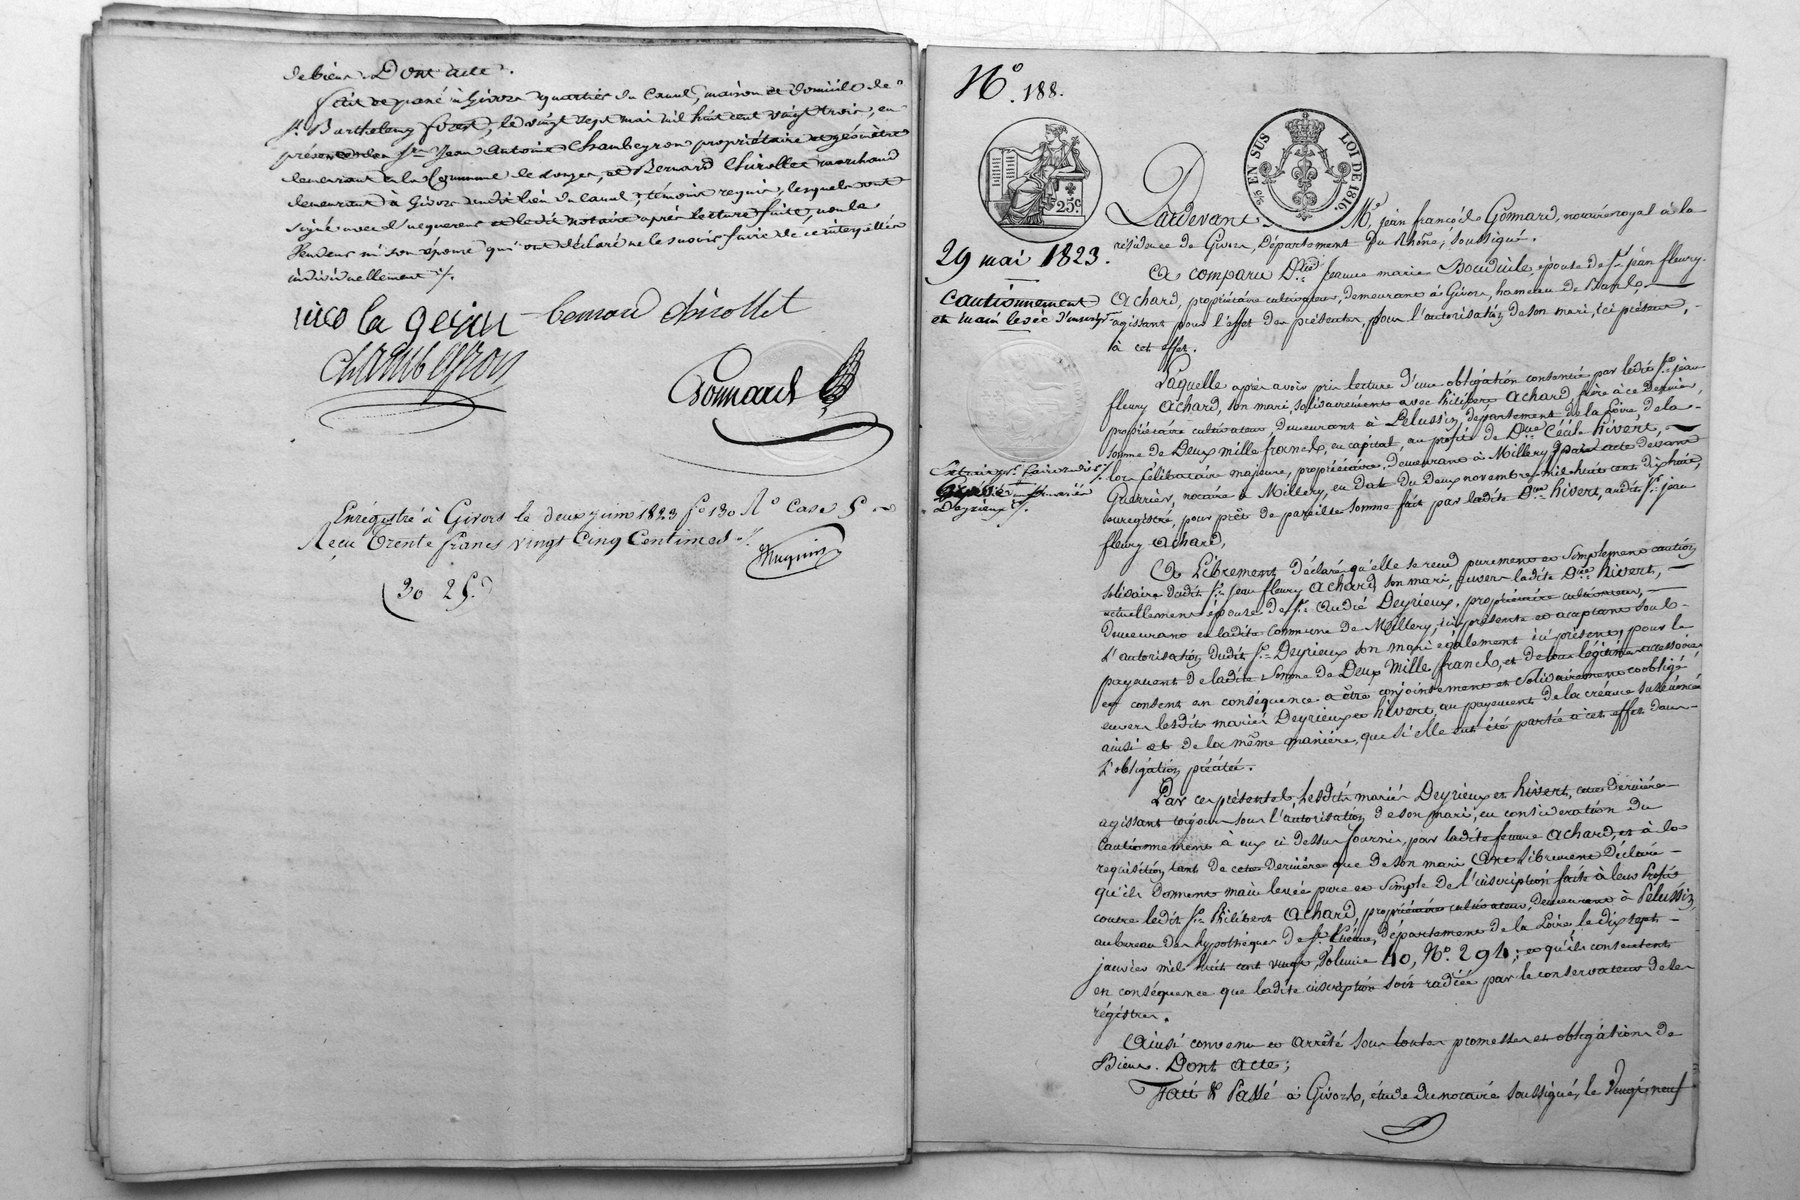 de biens. Dont acte.
fait et passé à Givors quartier du Canal, maison et domicile de
Sr. Barthelemy forest, le vingt sept mai mil huit cent vingt trois, en
présence des Srs. Jean Antoine Chambeyron propriétaire et géomètre
demeurant à la Commune de Longes, et Bernard Chirollet marchand
demeurant à Givors audit lieu du Canal, témoins requis, lesquels ont
signé avec d'uqueres et le dit notaire après lecture faite, non le
Vendeur ni son épouse qui ont déclaré ne le savoir faire de ce interpellés
individuellement ./.
bernard chirollet
chambeyron
Gomard
Enregistré à Givors le deux juin 1823 fo. 130 Ro. Case 5
Reçu Trente francs vingt Cinq Centimes ./.
30 25.
No. 188.
25c.
5/10 EN SUS
LOI DE 1816.
29 mai 1823.
Cautionnement
et main levée d'inscripon
Pardevant Me. jean françois Gomard, notaire royal à la
résidence de Givors, Département du Rhône, soussigné.
A comparu De. jeanne marie épouse de Sr. jean fleury
Achard, propriétaire cultivateur, demeurant à Givors, hameau de
agissant pour l'effet des présentes, sous l'autorisation de son mari, ici présent,
à cet effet.
Laquelle après avoir pris lecture d'une obligation consentie par ledit Sr. jean
fleury Achard, son mari, solidairement avec Philibert Achard, frère à ce dernier,
propriétaire cultivateur, demeurant à Pelussin, département de la Loire, de la
somme de Deux mille francs, en capital, au profit de Dlle. Cécile hivert,
lors célibataire majeure, propriétaire, demeurant à Millery, par acte devant
Guerrier, notaire à Millery, en date du Deux novembre mil huit cent dix huit,
enregistré, pour prêt de pareille somme fait par ladite Dlle. hivert, audit Sr. jean
fleury Achard,
A Librement Déclaré qu'elle se rend purement et simplement caution
solidaire dudit Sr. jean fleury Achard, son mari, envers ladite Dlle. hivert,
actuellement épouse de Sr. André Deyrieux, propriétaire cultivateur,
demeurant en ladite Commune de Millery, ici présente et acceptant sous
L'autorisation dudit Sr. Deyrieux son mari également ici présent, pour le
payement de ladite somme de Deux Mille francs, et de tous légitimes accessoires
et consent en conséquence a être conjointement et solidairement coobligée
envers lesdits mariés Deyrieux et hivert, au payement de la créance susénoncée
ainsi et de la même manière, que si elle eut été partie à cet effet dans
L'obligation précitée.
Par ces présentes, lesdits mariés Deyrieux et hivert, cette dernière
agissant toujours sous l'autorisation de son mari, en considération du
Cautionnement à eux ci dessus fourni, par ladite femme Achard, et à la
requisition tant de cette dernière que de son mari Ont librement Déclaré
qu'ils donnent main levée pure et simple de l'inscription faite à leur Profit
contre ledit Sr. Philibert Achard, propriétaire cultivateur, demeurant à Pelussin,
au bureau des hypothèques de St. Etienne, département de la Loire le dix sept
janvier mil huit cent vingt, Volume 40, No. 294; et qu'ils consentent
en conséquence que ladite inscription soit radiée par le conservateur de ses
régistres.
Ainsi convenu et arrêté sous toutes promesses et obligations de
Biens. Dont Acte;
Fait & Passé à Givors, étude du notaire soussigné, le Vingt neuf